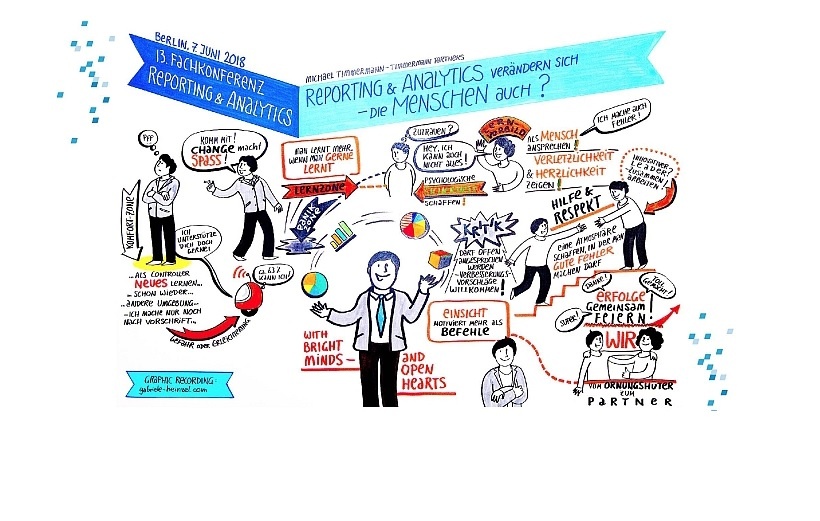 BERLIN, 7. JUNI 2018
13. FACHKONFERENZ
REPORTING & ANALYTICS
MICHAEL TIMMERMANN - TIMMERMANN PARTNERS
REPORTING & ANALYTICS VERÄNDERN SICH
- DIE MENSCHEN AUCH ?
PFF
KOMM MIT!
CHANGE macht
SPASS!
KOMFORT-ZONE
MAN LERNT MEHR,
WENN MAN GERNE
LERNT
LERNZONE
PANIK
ZONE
ZUTRAUEN?
HEY, ICH
KANN AUCH
NICHT ALLES!
PSYCHOLOGISCHE
SCHAFFEN!
LERN-
VORBILD
ALS MENSCH
ANSPRECHEN!
VERLETZLICHKEIT
& HERZLICHKEIT
ZEIGEN!
ICH MACHE AUCH
FEHLER!
LEADER
ZUSAMMEN
ARBEITEN
HILFE &
RESPEKT
EINE ATMOSPHÄRE
SCHAFFEN, IN DER MAN
GUTE FEHLER
MACHEN DARF
ICH
UNTERSTÜTZE
DICH DOCH
GERNE!
CA. 63%
KANN ICH!
...ALS CONTROLLER
NEUES LERNEN...
...SCHON WIEDER...
...ANDERE UMGEBUNG...
-ICH MACHE NUR NOCH
NACH VORSCHRIFT...
GEFAHR ODER ERLEICHTERUNG
KRITIK
DARF OFFEN
ANGESPROCHEN
WERDEN
VERBESSERUNGS-
VORSCHLÄGE
WILLKOMMEN!
EINSICHT
MOTIVIERT MEHR ALS
BEFEHLE
WITH
BRIGHT
MINDS -
AND
OPEN
HEARTS
SUPER!
ERFOLGE
GEMEINSAM
FEIERN!
WIR
VOM ORNUNGSHÜTER
ZUM
PARTNER
GRAPHIC RECORDING:
gabriele-heinzel.com